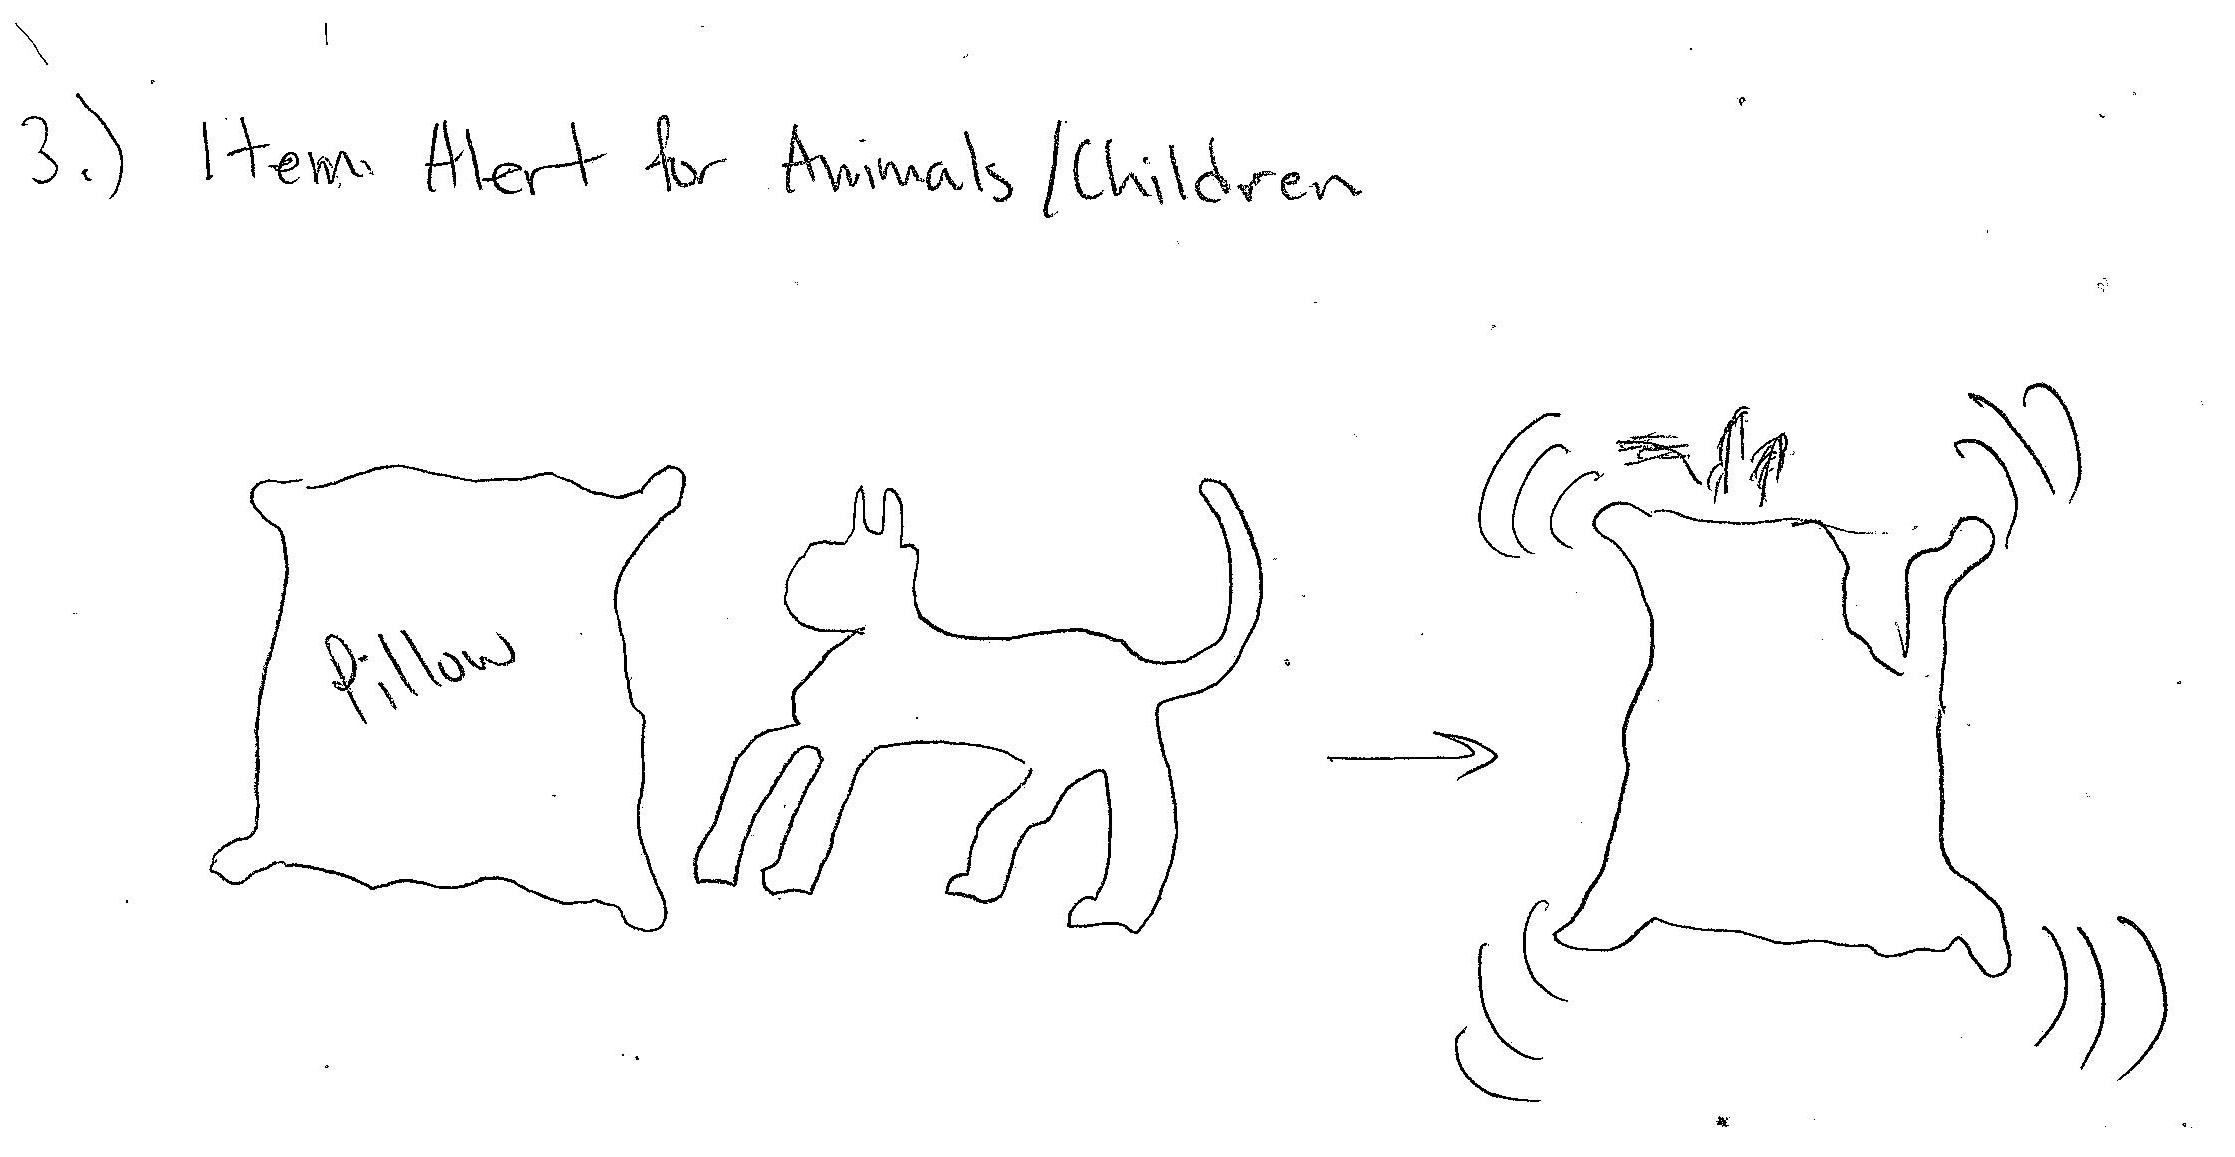 3.) Item Alert for Animals/Children
Pillow